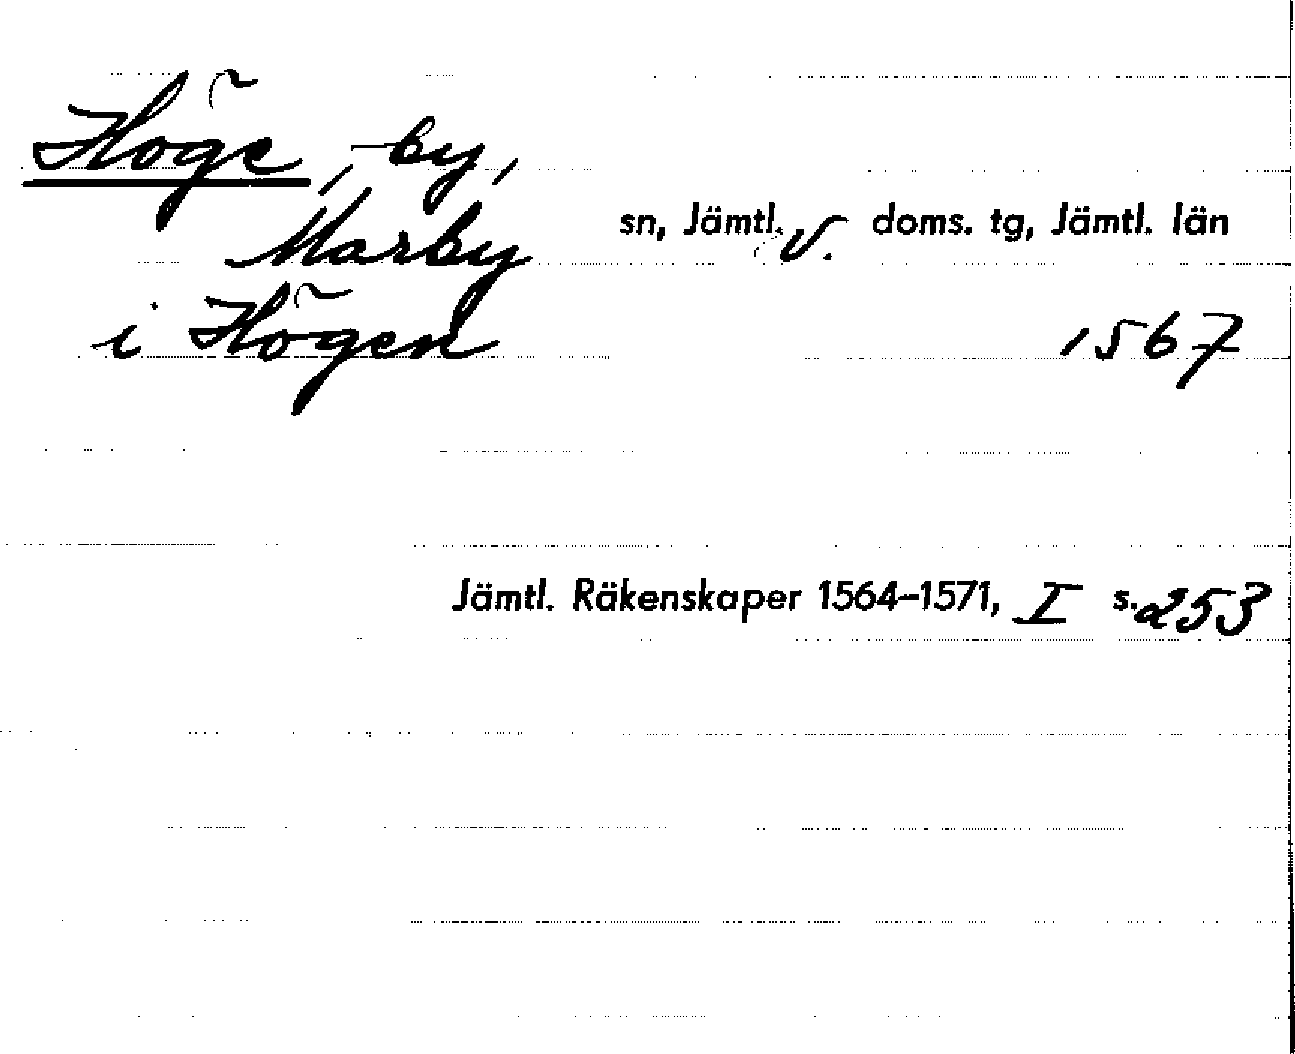 Höge, by,
Marby sn, Jämtl. v. doms. tg, Jämtl. län
i Högen 1567
Jämtl. Räkenskaper 1564–1571, I s. 253